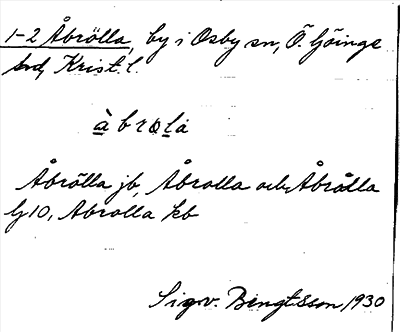 1-2 Åbrölla, by i Osby sn, Ö. Göinge
hd, Krist. l.
àbrola
Åbrölla jb, Åbrolla och Åbrålla
Gj 10, Abrolla kb
Sigv. Bengtsson 1930